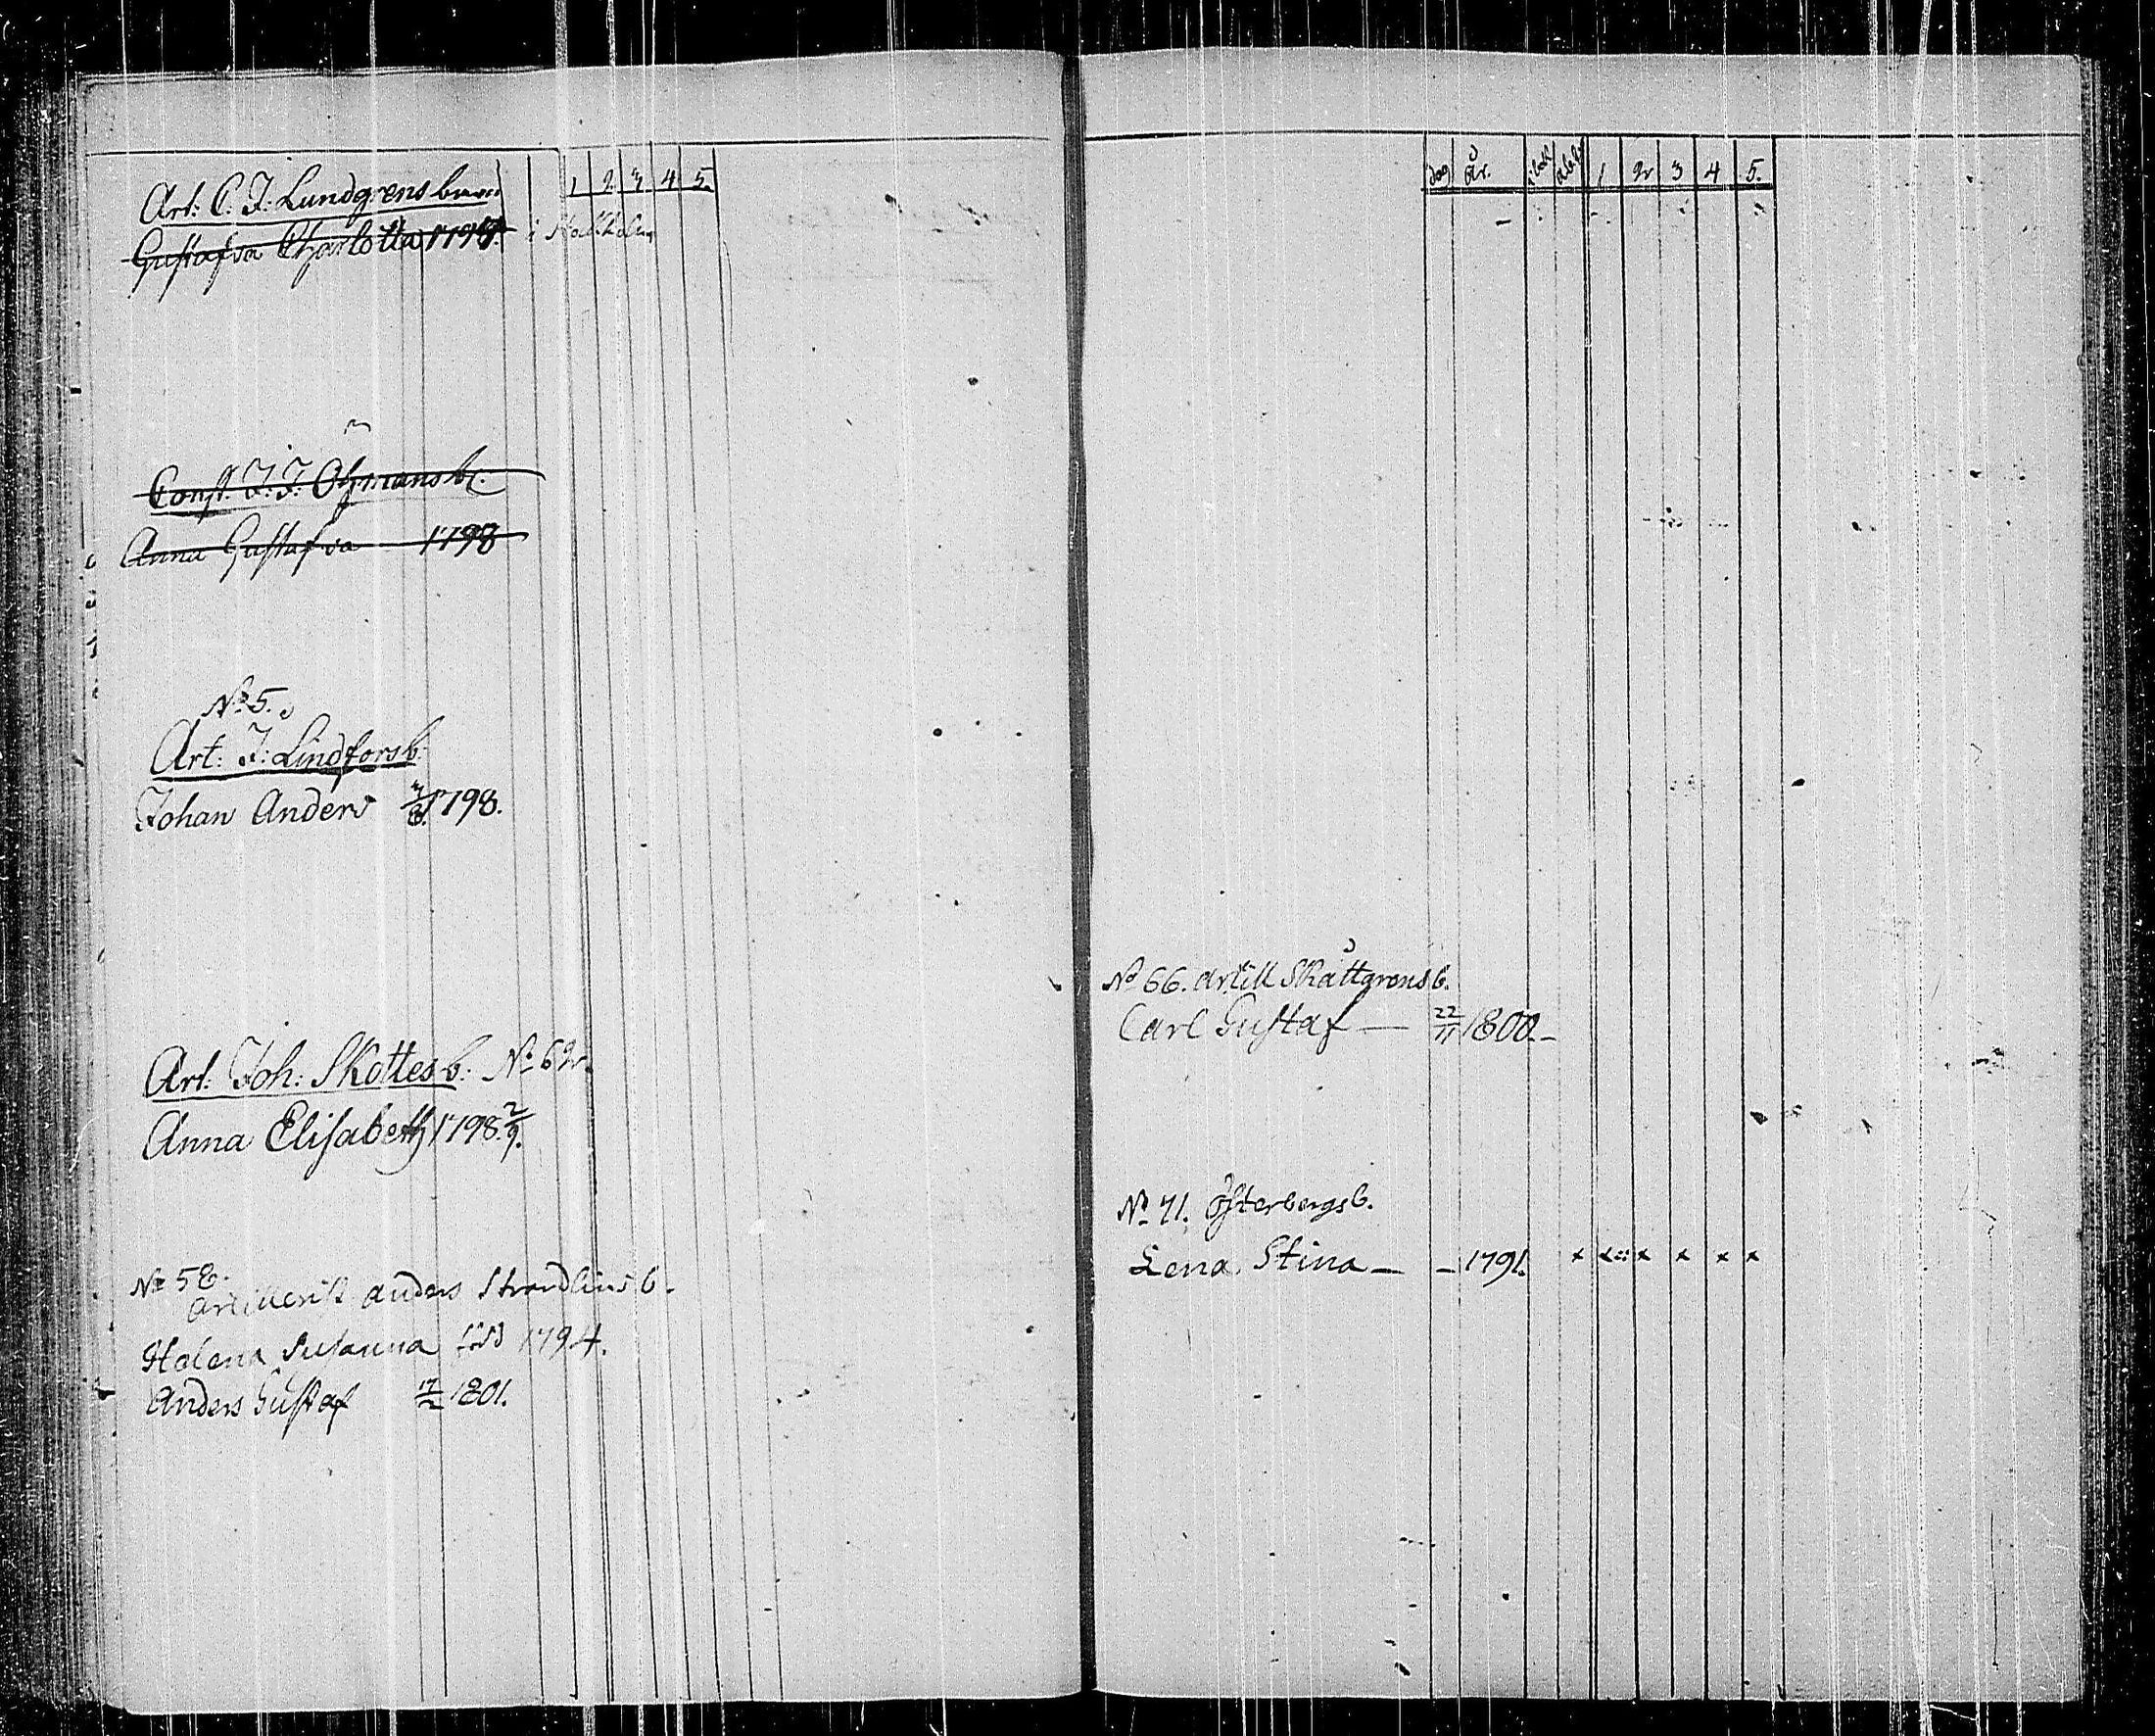 Art: C. J: Lundgrens barn
1 2 3 4 5.
Gustafva Charlotta 1798. i Stockholm
Const. J: J: Öhmans b:
Anna Gustafva 1798
No 5.
Art: J: Lindfors b:
Johan Anders 1798.
Art: Joh: Skottes b: No 62.
Anna Elisabeth 1798. 2/9.
No 58.
Artillerist Anders Strandlins b.
Helena Susanna född 1794.
Anders Gustaf 17/2 1801.
dag År. i bok 1 2 3 4 5.
No 66. Artill Skåttgrens b.
Carl Gustaf — 22/11 1800. –
No 71. Österbergs b.
Lena Stina — – 1791. x x :: x x x x